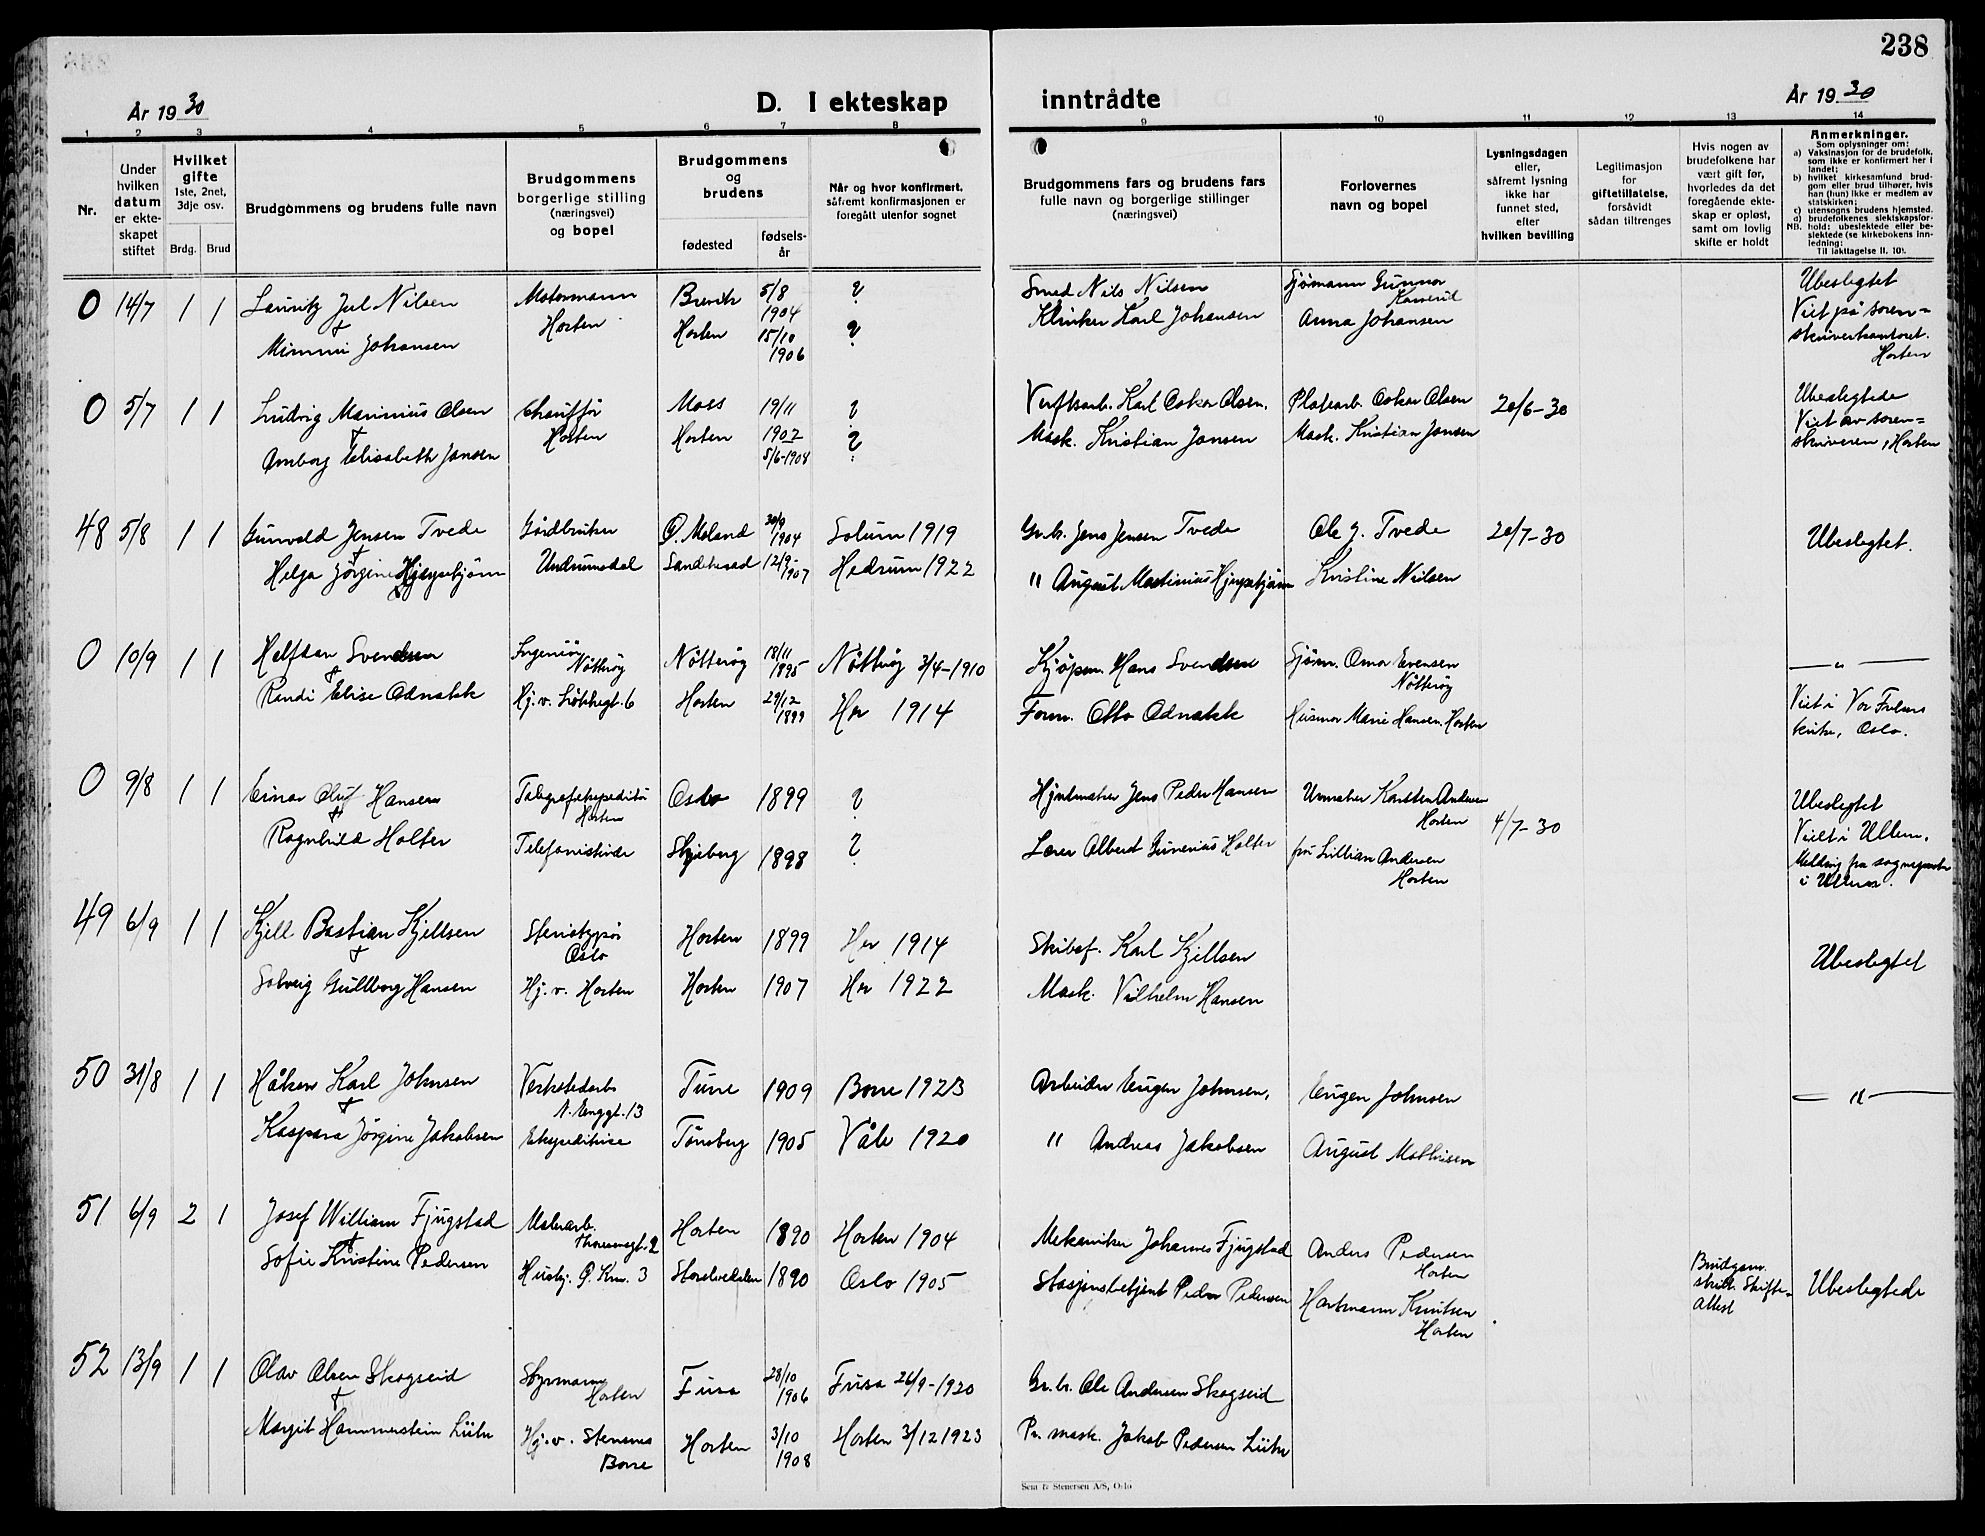 238
År 19 30
D. I ekteskap inntrådte
År 19 30
1 2 3 4 5 6 7 8 9 10 11 12 13 14
Nr.
Under hvilken datum er ekteskapet stiftet
Hvilket gifte 1ste, 2net, 3dje osv.
Brdg. Brud
Brudgommens og brudens fulle navn
Brudgommens borgerlige stilling (næringsvei) og bopel
Brudgommens og brudens
fødested
fødselsår
Når og hvor konfirmert, såfremt konfirmasjonen er foregått utenfor sognet
Brudgommens fars og brudens fars fulle navn og borgerlige stillinger (næringsvei)
Forlovernes navn og bopel
Lysningsdagen eller, såfremt lysning ikke har funnet sted, efter hvilken bevilling
Legitimasjon for giftetillatelse, forsåvidt sådan tiltrenges
Hvis nogen av brudefolkene har vært gift før, hvorledes da det foregående ekteskap er opløst, samt om lovlig skifte er holdt
Anmerkninger.
Som oplysninger om:
a) Vaksinasjon for de brudefolk, som ikke er konfirmert her i landet;
b) hvilket kirkesamfund brudgom eller brud tilhører, hvis han (hun) ikke er medlem av statskirken;
c) utensogns brudens hjemsted.
d) brudefolkenes slektskapsforhold: ubeslektede eller beslektede (se kirkebokens innledning:
NB.
Til iakttagelse II. 10).
0 14/7 1 1 Lauritz Jul Nilsen Motormann Horten Brevik 5/8 1904 ? Smed Nils Nilsen Sjømann Gunnar Ubeslegtet
+ Mimmi Johansen Horten 15/10 1906 ? Klinker Karl Johansen Anna Johansen Viet på sorenskriverkontoret. Horten
0 5/7 1 1 Ludvig Marinius Olsen Chauffør Horten Moss 19/11 1902 ? Verftsarb. Karl Oskar Olsen. Platearb. Oskar Olsen 20/6-30 Ubeslegtede
+ Elisabeth Jansen Horten 5/6-1908 ? Mask. Kristian Jansen Mask. Kristian Jansen Viet av sorenskriveren, Horten
48 5/8 1 1 Gunvald Jensen Tvede Gårdbruker Undrumsdal Ø. Moland 30/9 1904 Solum 1919 Gr.br. Jens Jensen Tvede Ole J. Tvede 20/7-30 Ubeslegtet.
+ Helga Jørgine Sandeherad 12/9 1907 Hedrum 1922 " August Martinius Kristine Nilsen
0 10/9 1 1 Halfdan Svendsen Ingeniør Nøtterøy Nøtterøy 18/11 1895 Nøtterøy 3/4-1910 Kjøpm. Hans Svendsen Sjøm. Omar Evensen Nøtterøy — " —
+ Randi Elise Odnakk Hj. v. 6 Horten 29/12 1899 Her 1914 Form. Otto Odnakk Husmor Marie Hansen. Horten Viet i Vor Frelsers kirke, Oslo.
0 9/8 1 1 Einar Oluf Hansen Telegrafekspeditør Horten Oslo 1899 ? Hjulmaker Jens Peder Hansen Urmaker Karsten Andersen Horten 4/7-30 Ubeslegtet
+ Ragnhild Holter Telefonistinde Skjeberg 1898 ? Lærer Albert Gunerius Holter fru Lillian Andersen Horten Viet i Ullern. Melding fra sogneprest i Ullern.
49 6/9 1 1 Kjell Bastian Kjellsen Oslo Horten 1899 Her 1914 Skibsf. Karl Kjellsen Ubeslegtet
+ Solveig Gullborg Hansen Hj. v. Horten Horten 1907 Her 1922 Mask. Vilhelm Hansen
50 31/8 1 1 Håkon Karl Johnsen Verkstedarb. N. Enggt. 13 Tune 1909 Borre 1923 Arbeider Eugen Johnsen, Eugen Johnsen — " —
+ Kaspara Jørgine Jakobsen Ekspeditrise Tønsberg 1905 Våle 1920 " Andreas Jakobsen August Mathisen
51 6/9 2 1 Josef William Fjugstad Malerarb. 2 Horten 1890 Horten 1904 Mekaniker Johannes Fjugstad Anders Pedersen Horten Brudgom. skilt. Skifteattest Ubeslegtede
+ Sofie Kristine Pedersen 3 Storelvedalen 1890 Oslo 1905 Stasjonsbetjent Peder Pedersen Hartmann Knutsen Horten
52 13/9 1 1 Olav Olsen Skogseid Styrmann Horten Fusa 28/10 1906 Fusa 26/9-1920 Gr.br. Ole Andersen Skogseid
+ Margit Hammerstein Lühr Hj. v. Stensnes Borre Horten 3/10 1908 Horten 3/12 1923 Pr. mask. Jakob Pedersen Lühr
Sem & Stenersen A/S, Oslo